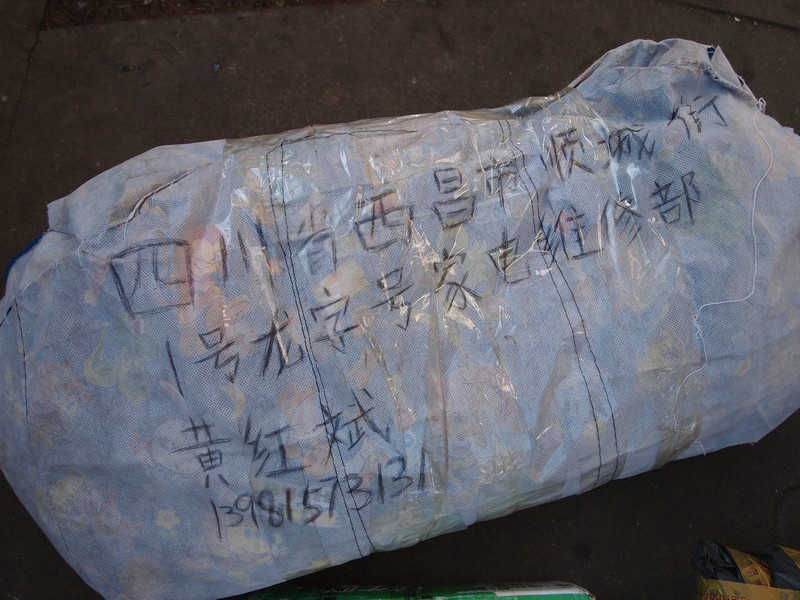 四川省西昌市顺城街
1号龙字号家电维修部
黄红斌
13981573131